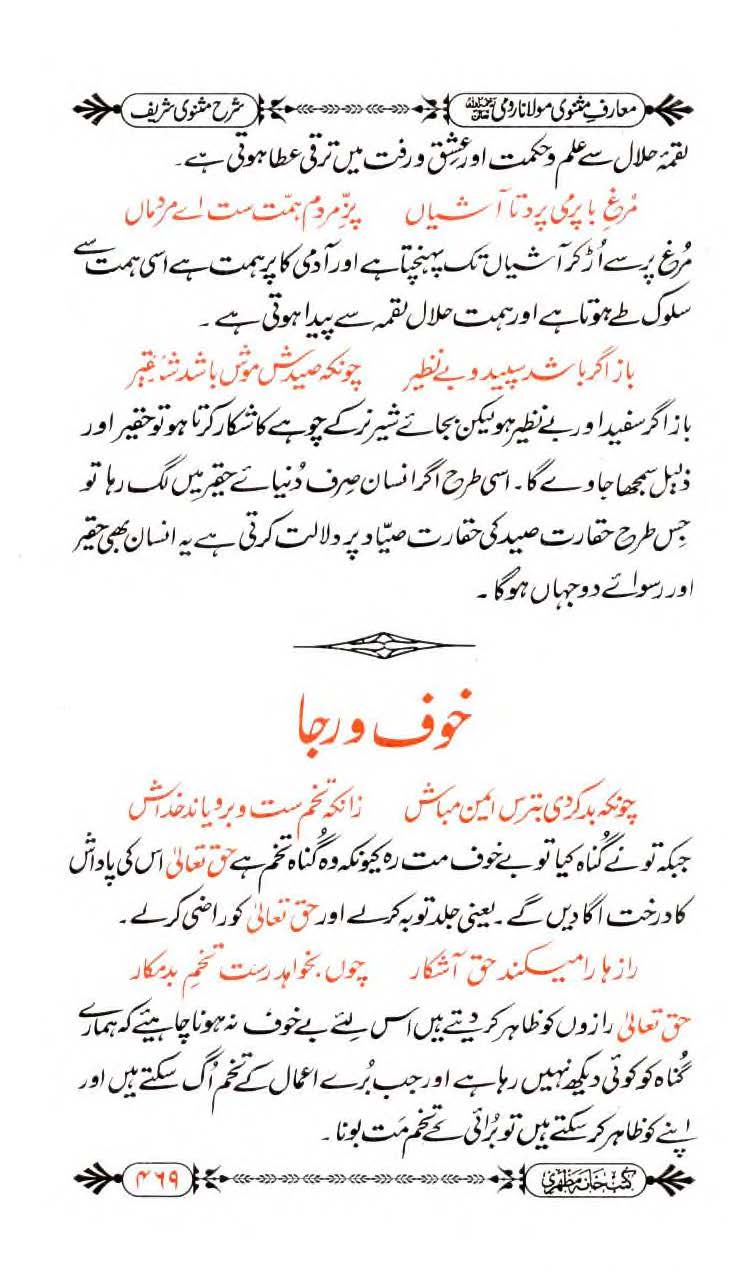 معارفِ مثنوی مولانا رومی رحمۃ اللہ تعالیٰ علیہ    شرح مثنوی شریف
لقمۂ حلال سے علم و حکمت اور عشق و رقت میں ترقی عطا ہوتی ہے۔
مُرغ با پر می پرد تا آشیاں    پرِّ مردم ہمّت ست اے مردماں
مُرغ پر سے اُڑ کر آشیاں تک پہنچتا ہے اور آدمی کا پر ہمت ہے اسی ہمت سے
سلوک طے ہوتا ہے اور ہمت حلال لقمہ سے پیدا ہوتی ہے ۔
باز اگر باشد سپید و بے نظیر    چونکہ صیدش موش باشد شد حقیر
باز اگر سفید اور بے نظیر ہو لیکن بجائے شیر نر کے چوہے کا شکار کرتا ہو تو حقیر اور
ذلیل سمجھا جاوے گا۔ اسی طرح اگر انسان صِرف دُنیائے حقیر میں لگ رہا تو
جِس طرح حقارت صید کی حقارت صیّاد پر دلالت کرتی ہے یہ انسان بھی حقیر
اور رسوائے دوجہاں ہوگا ۔
خوف و رجا
چونکہ بد کردی بترس ایمن مباش    زانکہ تخم ست و برویاند خداش
جبکہ تو نے گُناہ کیا تو بے خوف مت رہ کیونکہ وہ گُناہ تخم ہے حق تعالیٰ اس کی پاداش
کا درخت اگا دیں گے ۔ یعنی جلد توبہ کر لے اور حق تعالیٰ کو راضی کر لے۔
راز ہا را میکند حق آشکار    چوں بخواہد رست تخمِ بد مکار
حق تعالیٰ رازوں کو ظاہر کر دیتے ہیں اس لئے بے خوف نہ ہونا چاہیئے کہ ہمارے
گُناہ کو کوئی دیکھ نہیں رہا ہے اور جب بُرے اعمال کے تخم اُگ سکتے ہیں اور
اپنے کو ظاہر کر سکتے ہیں تو بُرائی کے تخم مَت بونا ۔
کتب خانہ مظہری    ۴۶۹